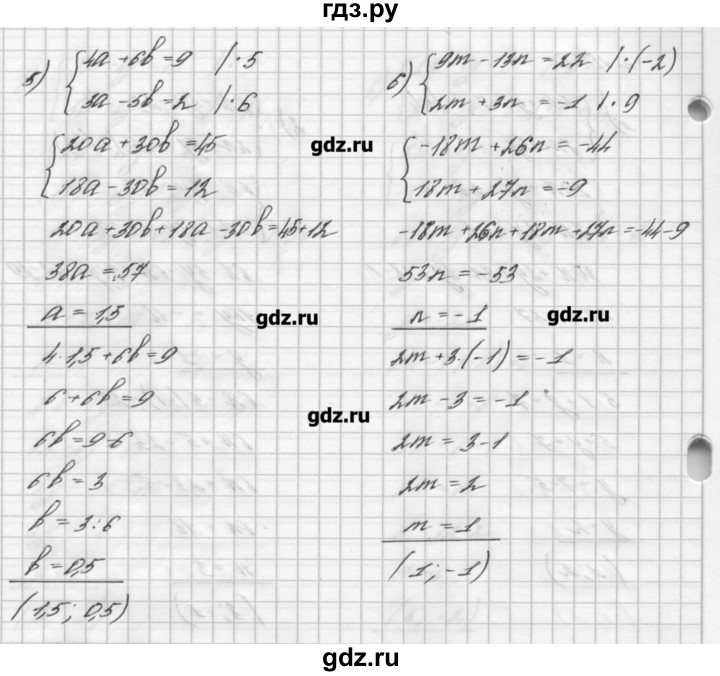 гдз.ру
5) { 4a + 6b = 9 | · 5
3a - 5b = 2 | · 6
{ 20a + 30b = 45
18a - 30b = 12
20a + 30b + 18a - 30b = 45 + 12
38a = 57
a = 1,5
4 · 1,5 + 6b = 9
6 + 6b = 9
6b = 9 - 6
6b = 3
b = 3 : 6
b = 0,5
(1,5; 0,5)
6) { 9m - 13n = 22 | · (-2)
2m + 3n = -1 | · 9
{ -18m + 26n = -44
18m + 27n = -9
-18m + 26n + 18m + 27n = -44 - 9
53n = -53
n = -1
2m + 3 · (-1) = -1
2m - 3 = -1
2m = 3 - 1
2m = 2
m = 1
(1; -1)
gdz.ru
gdz.ru
gdz.ru
gdz.ru
gdz.ru